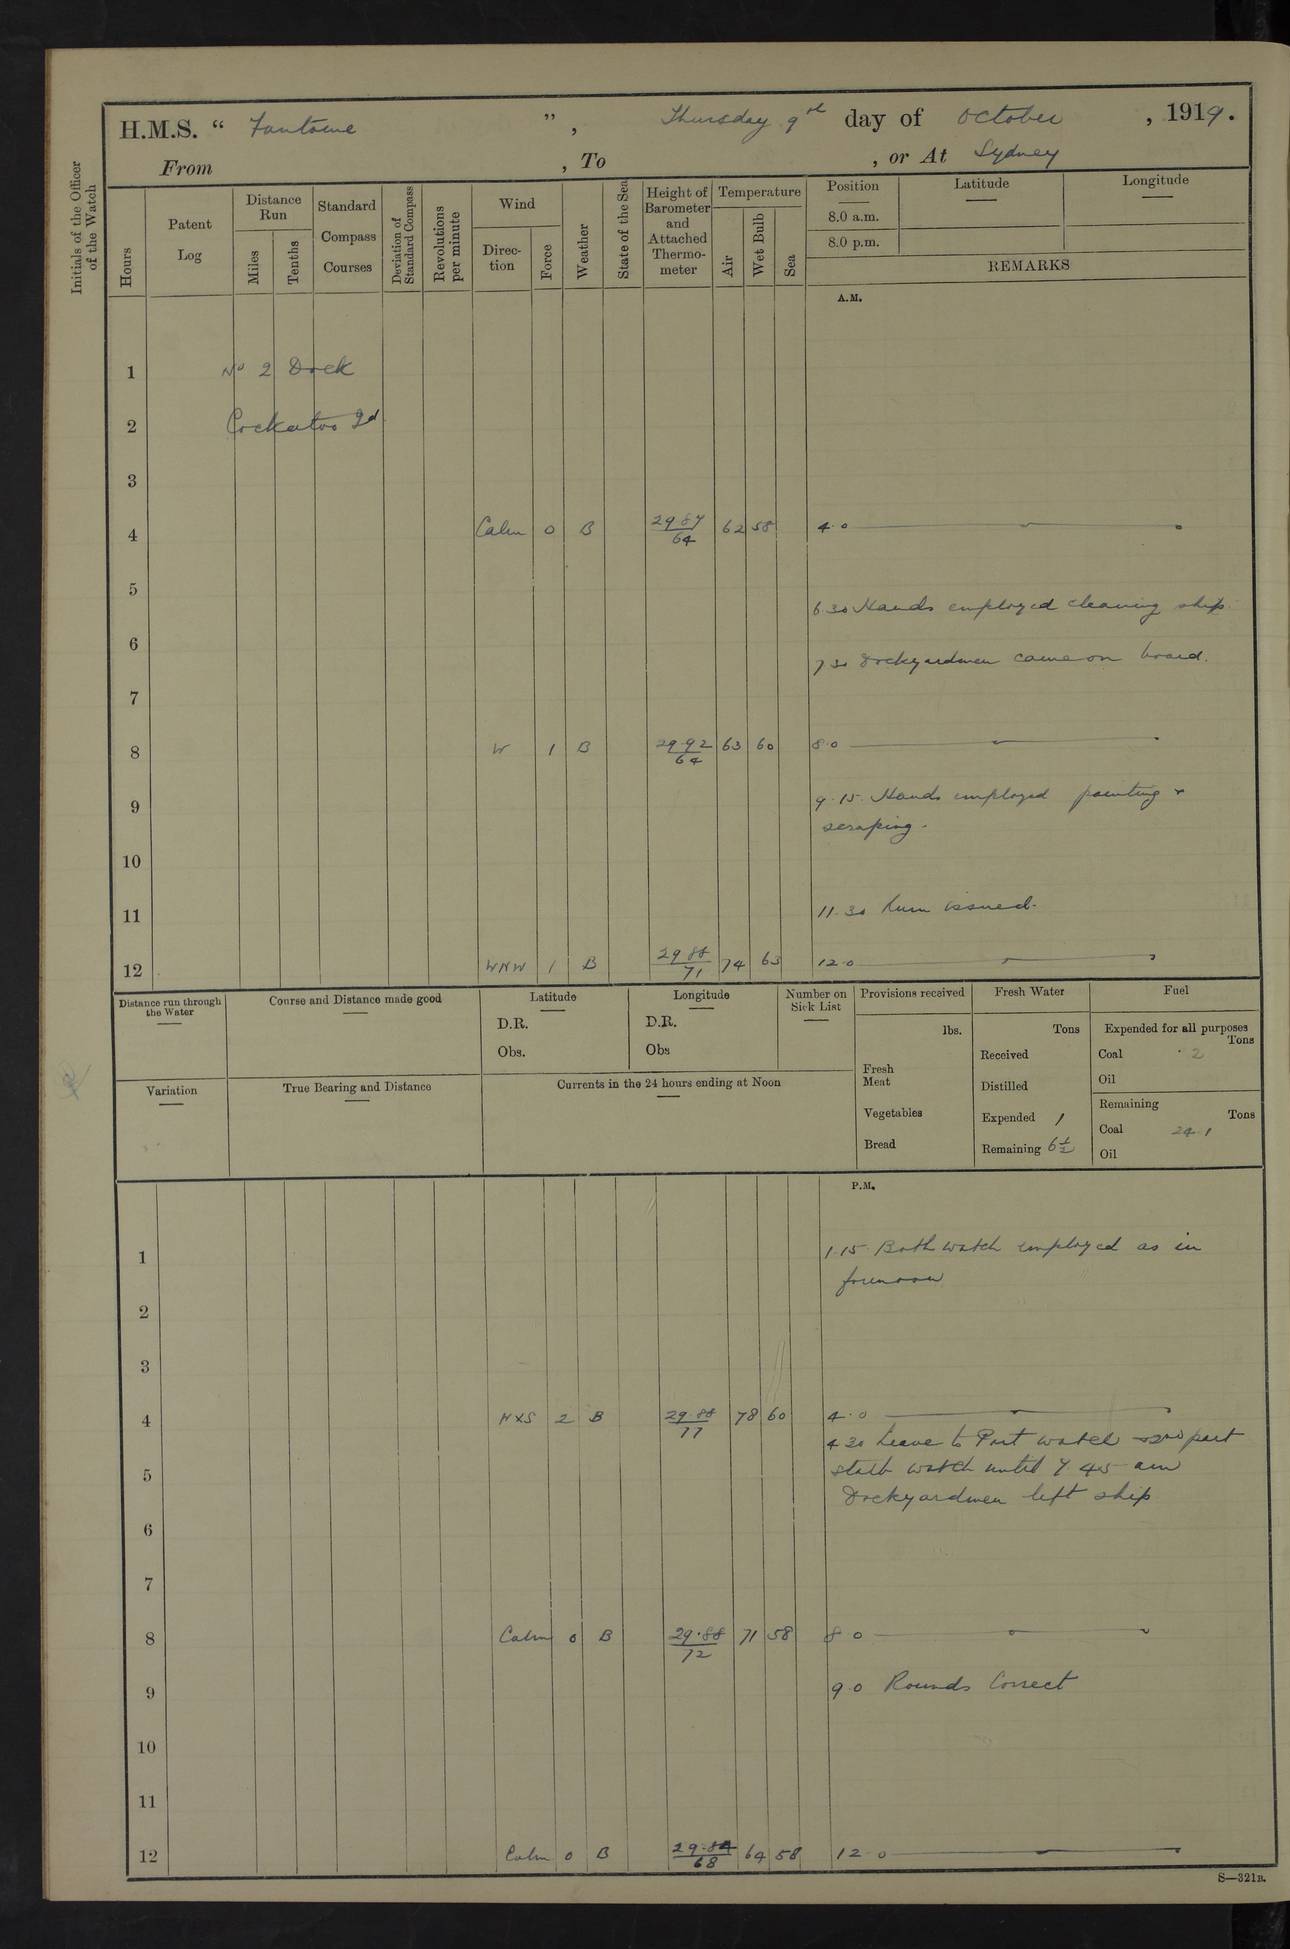 H.M.S. “ Fantome ”, Thursday 9th day of October, 1919.
From , To , or At Sydney
Initials of the Officer of the Watch
Hours
Patent Log
Distance Run
Miles
Tenths
Standard Compass Courses
Deviation of Standard Compass
Revolutions per minute
Wind
Direction
Force
Weather
State of the Sea
Height of Barometer and Attached Thermometer
Temperature
Air
Wet Bulb
Sea
Position Latitude Longitude
8.0 a.m.
8.0 p.m.
REMARKS
A.M.
1 No 2 Dock
2 Cockatoo Id
3
4 Calm 0 B 29 87/64 62 58 4.0
5
6.30 Hands employed cleaning ship.
6
7 30 Dockyardmen came on board.
7
8 W 1 B 29.92/64 63 60 8.0
9 9.15. Hands employed painting &
scraping.
10
11 11.30 Rum issued.
12 WNW 1 B 29 88/71 74 63 12.0
Distance run through the Water
Course and Distance made good
Latitude
D.R.
Obs.
Longitude
D.R.
Obs
Number on Sick List
Provisions received
lbs.
Fresh Meat
Vegetables
Bread
Fresh Water
Tons
Received
Distilled
Expended 1
Remaining 6½
Fuel
Expended for all purposes
Tons
Coal ·2
Oil
Remaining
Tons
Coal 24.1
Oil
Variation
True Bearing and Distance
Currents in the 24 hours ending at Noon
P.M.
1 1.15. Both watch employed as in
forenoon
2
3
4 WXS 2 B 29.88/77 78 60 4.0
4 30 Leave to Port watch & 2nd part
5 starb watch until 7 45 am
Dockyardmen left ship
6
7
8 Calm 0 B 29.88/72 71 58 8 0
9 9.0 Rounds Correct
10
11
12 Calm 0 B 29.84/68 64 58 12.0
S—321B.